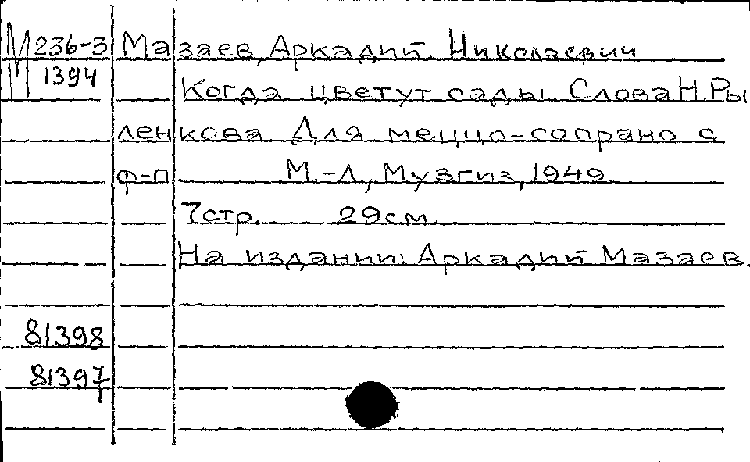 М 236-3 Мазаев, Аркадий Николаевич
1394 Когда цветут сады Слова Н. Ры
ленкова Для меццо-сопрано с
ф-п М.-Л, Музгиз, 1949
7стр. 29см
На издании: Аркадий Мазаев.
81398
81397